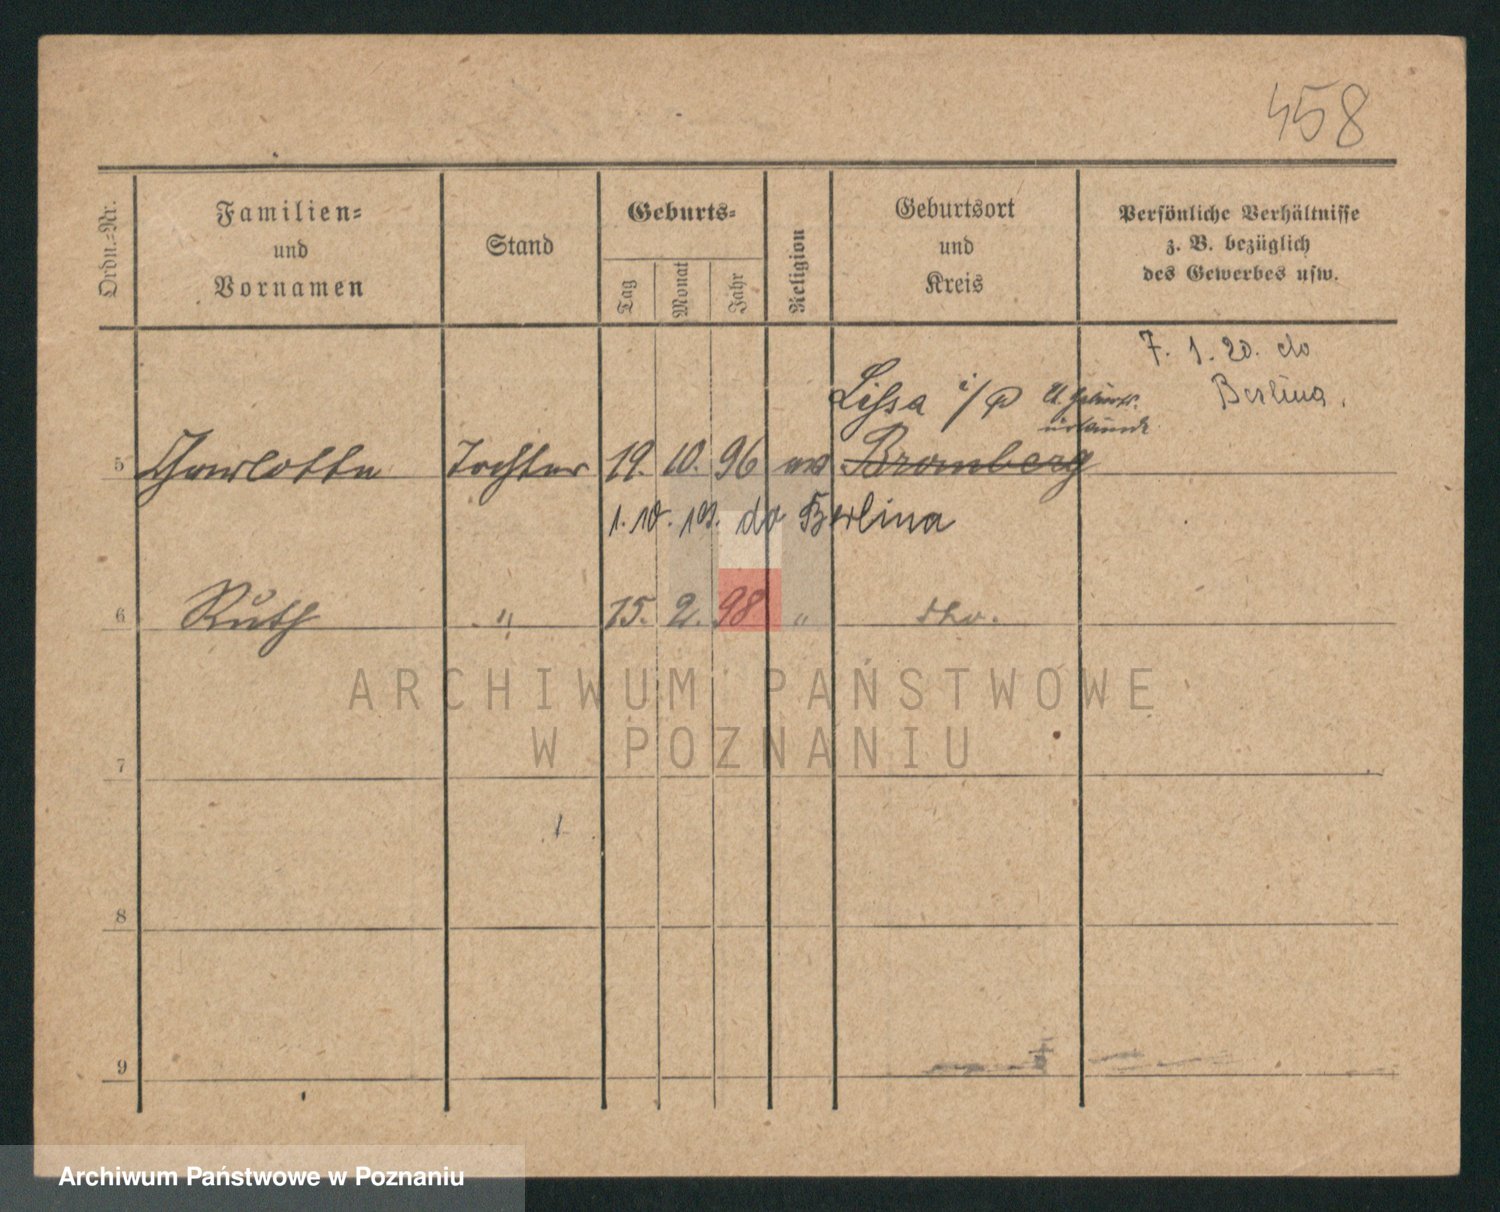 458
Ordn.-Nr.
Familien-
und
Vornamen
Stand
Geburts-
Tag
Monat
Jahr
Religion
Geburtsort
und
Kreis
Persönliche Verhältnisse
z. B. bezüglich
des Gewerbes usw.
7. 1. 20. do
Berlina.
Lissa i/P
urkunde
5 Charlotte Tochter 19. 10. 96 ev Bromberg
1. 10. 19. do Berlina
6 Ruth " 15. 2. 98 " dto.
ARCHIWUM PAŃSTWOWE
W POZNANIU
7
8
9
Archiwum Państwowe w Poznaniu